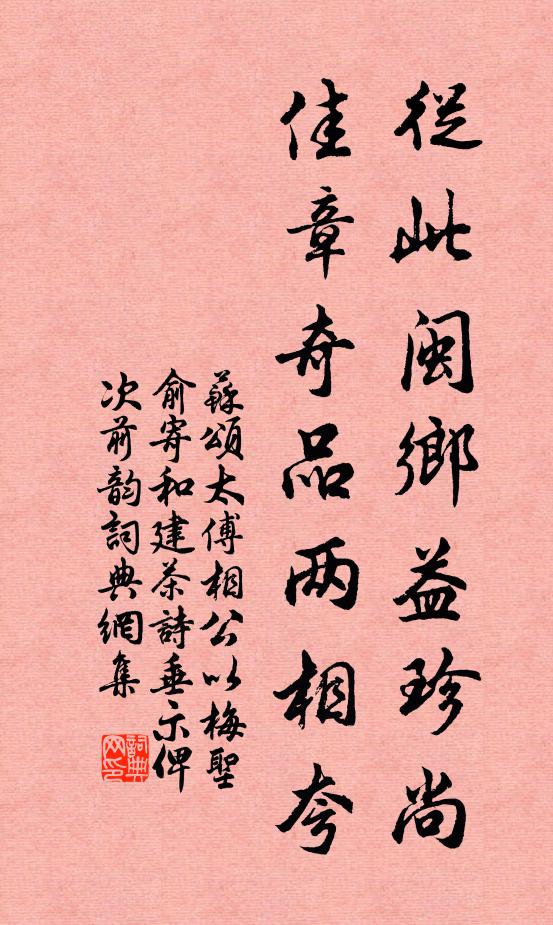 從此閩鄉益珍尚
佳章奇品两相夸
蘇頌太傅相公以梅聖
俞寄和建茶詩垂示俾
次前韵詞典網集
詞典
网印